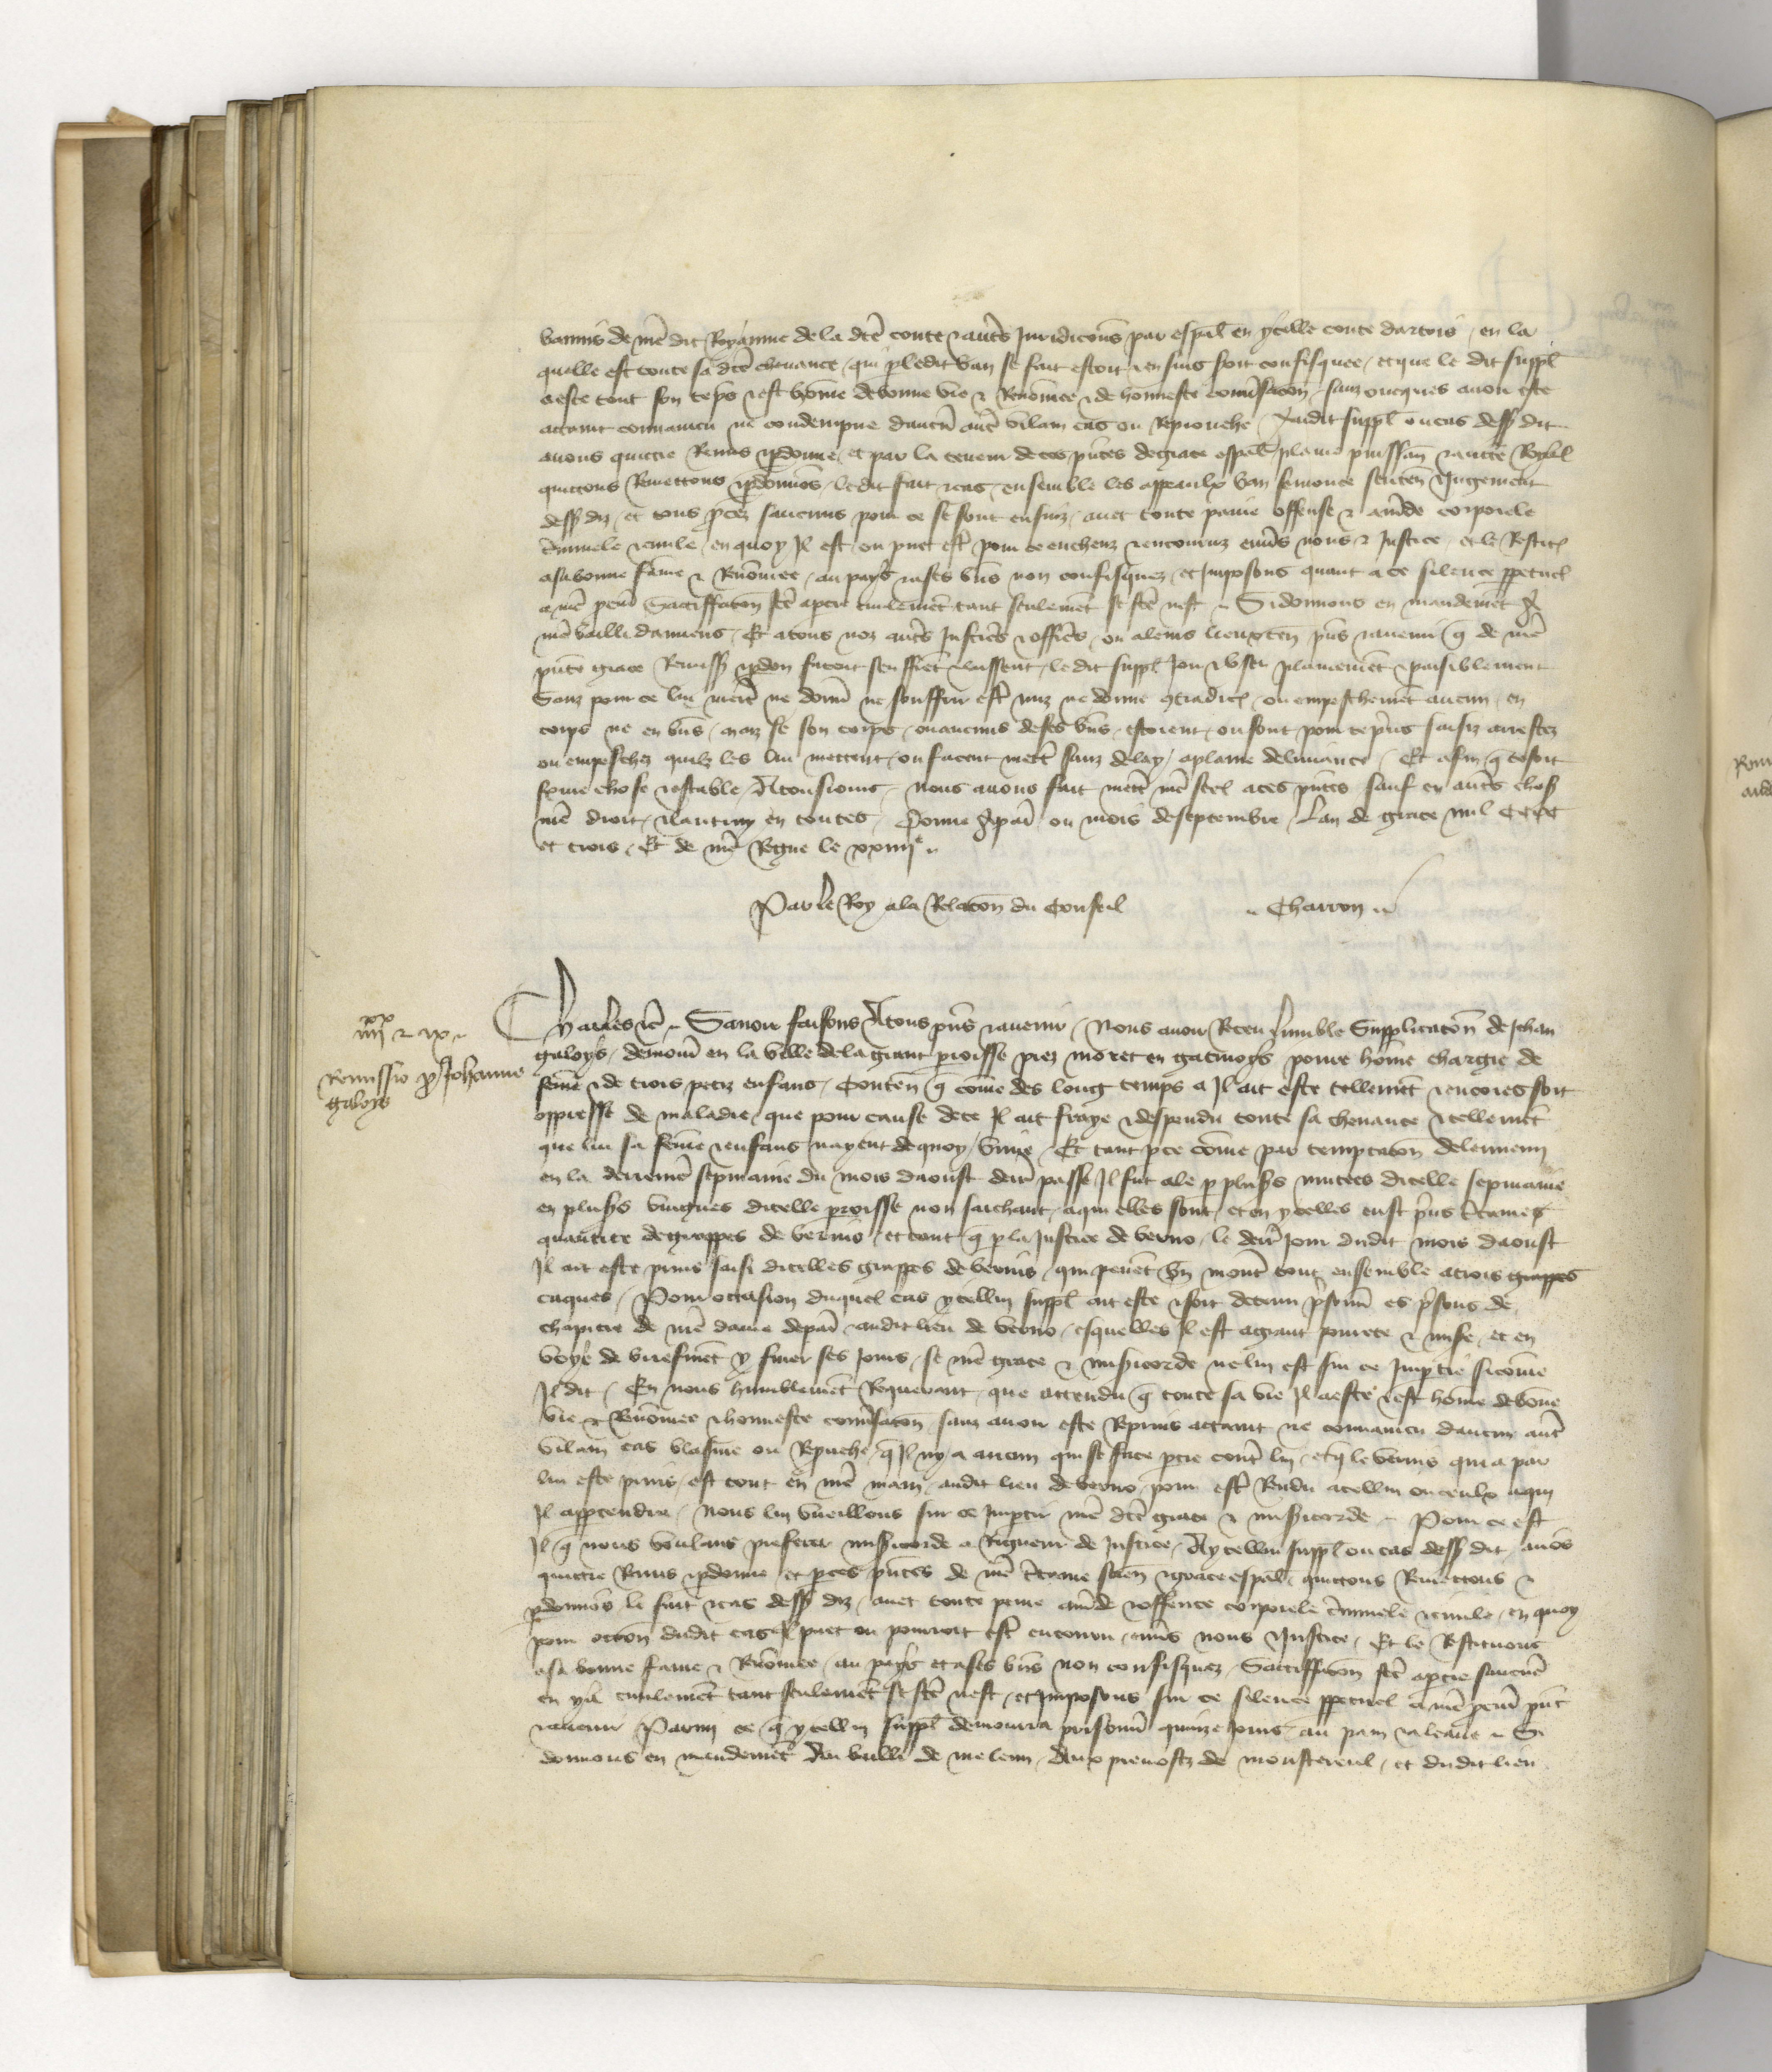 bannis de nre dit Royaume de la dce conte & autres Juridicions par espal en ycelle conte dartois / en la
quelle est toute sa dce chevance / qui pledit ban se fait estoit & ensuis soit confisquee / et que le dit suppl
a este tout son teps & est home de bonne vie & Renomee & de honneste conversacon / sanz oncques avoir este
attaint convaincu ne condempne daucun autre vilain cas ou Reprouche / Audit suppl ou cas dess dit
avons quittie Remis & pardonne / et par la teneur de ces pntes de grace espal plaine puissan & auctte Royal
quittons Remettons & pardonnons / ledit fait & cas / ensemble les appeaulx ban semonce senten & Jugement
dess diz / et tous procez saucuns pour ce se sont ensuiz / avec toute paine offense & amde corporele
criminele & civile / en quoy Il est ou puet estre pour ce encheuz & encouruz envers nous & Justice / et le Restit
a sa bonne fame & Renomee / au pays & a ses bns non confisquez / et Imposons quant a ce silence ppetuel
a nre procur Satisffacon fce a partie civilemt tant seulemt se fce nest ~ Si donnons en mandemt Au
nre bailli damiens / Et a tous noz autres Justiciers & officiers / ou a leurs lieuxten pns & avenir q de nre
pnte grace Remission & pardon facent seuffret & laissent / ledit suppl Joir & user plainemt & paisiblement
Sanz pour ce lui mettre ne donner ne souffrir estre mis ne donne contradict / ou empeschemt aucun / en
corps ne en bns / maiz se son corps / ou aucuns de ses bns / estoient / ou sont pour ce prins saisiz arrestez
ou empeschez quilz les lui mettent / ou facent mettre sanz delay / a plaine delivrance / Et afin q ce soit
ferme chose & stable / A tousiours / Nous avons fait mettre nre scel a ces pntes sauf en autres choses
nre droit / & lautruy en toutes / Donne A paris ou mois de septembre / Lan de grace mil CCCC
et trois / Et de nre Regne le xxiiije ~
Par le Roy a la Relacon du Conseil ~ Charron ~
Charles &c ~ Savoir faisons A tous pns & avenir / Nous avoir Receu lumble Supplicacon de Jehan
galoys / demour en la ville de la grant paroisse prez moret en gatinoys povre home chargie de
feme & de trois petiz enfans / Conten q come des long temps a Il ait este tellemt & encores soit
oppresse de maladie / que pour cause de ce Il ait fraye & despendu toute sa chevance & tellemt
que lui sa feme & enfans nayent de quoy / vivre / Et tant pce come par temptacon de lennemi
en la derreniere sepmaine du mois daoust derr passe Il fut ale p plus nuitees dicelle sepmaine
en plus vingnes dicelle paroisse non saichant / a qui elles sont / et en ycelles eust prins Certaine
quantite de grappes de verius / et tant q p la Justice de verno / le derr Jour dudit mois daoust
Il ait este prins saisi dicelles grappes de verius / qui pevent bn monter tout ensemble a trois grappes
caques / Pour occasion duquel cas ycellui suppl ait este & soit detenu prisonn es prisons de
chapitre de nre dame de paris audit lieu de verno / esquelles Il est a grant povrete & mise / et en
voye de briefment y finer ses Jours / se nre grace & misericorde ne lui est sur ce Impartie si come
Il dit / En nous humblement Requerant / que attendu q toute sa vie Il a este & est home de bone
vie & Renomee & honneste conversacon / sanz avoir este Reprins attaint ne convaincu daucun autre
vilain cas blasme ou Repuche / q Il ny a aucun qui se face ptie contre lui / et q le verius qui a par
lui este prins / est tout en nre main / audit lieu de verno / pour estre Rendu a cellui ou ceulx a qui
Il apptendra / Nous lui vueillons sur ce Impartir nre dce grace & misericorde ~ Pour ce est
Il q nous voulans preferer misericorde a Rigueur de Justice / A ycellui suppl ou cas dess dit / avons
quittie Remis & pardonne / et p ces pntes de nre Certaine scien & grace espal / quittons Remettons &
pardonnons / le fait & cas dess diz / avec toute peine amde & offence corporele criminele & civile / en quoy
pour occon dudit cas Il puet ou pourroit estre encouru / envers nous & Justice / Et le Restituons
a sa bonne fame & Renomee / au pays et a ses bns non confisquez / Satisffacon fce a partie saucune
en y a civilemt tant seulemt se fce nest / et Imposons sur ce silence ppetuel a nre procur pnt
& avenir Parmi ce q ycellui suppl demourra prisonn quinze Jours / au pain & a leaue ~ Si
donnons en mandemt Au bailli de meleun / Aux prevostz de monstereul / et dudit lieu
iiijxx & ix ~
Remissio p Johanne
galoys